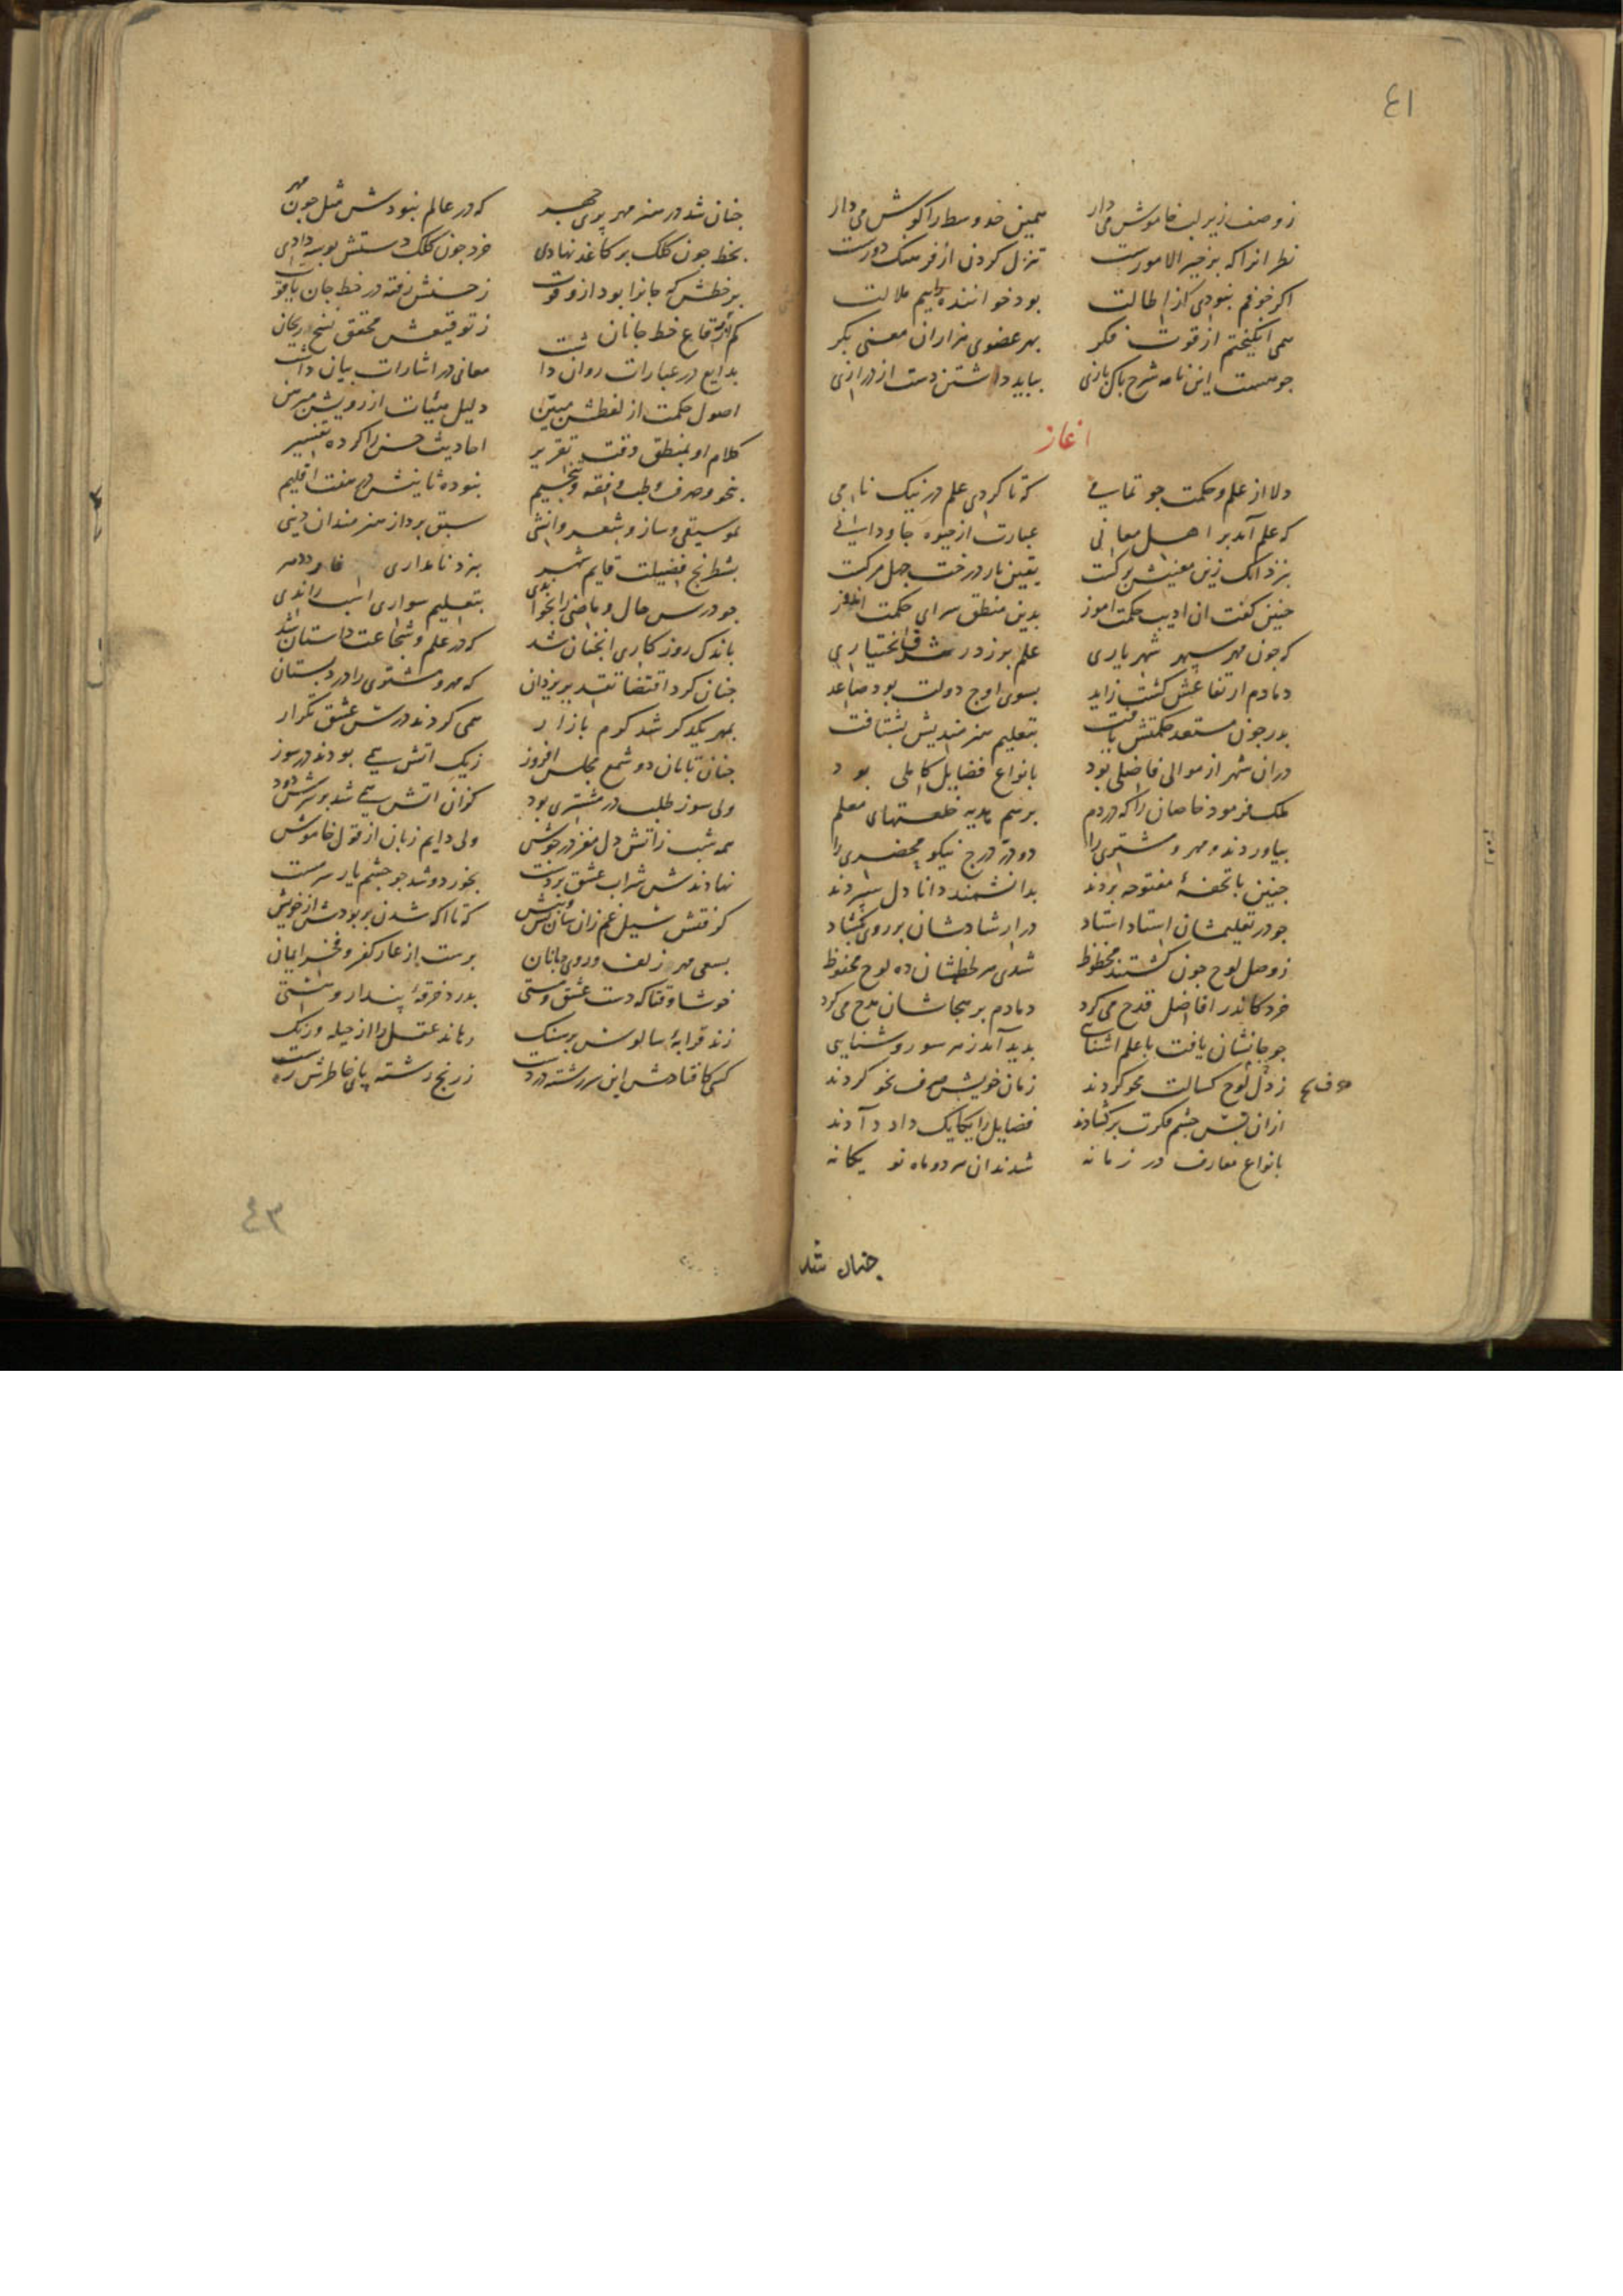 ٤١
ز وصف زیر لب خاموش می دار همین خد وسط را کوش می دار
نظر انرا که بر خیر الامورست تنزل کردن از فرسنک دورست
اکر خوفم نبودی از اطالت بود خواننده را بیم ملالت
همی انکیختم از قوت فکر بهر عضوی هزاران معنی بکر
جو هست این نامه شرح پاک بازی بباید داشتن دست از درازی
اغاز
دلا از علم و حکمت جو تمامی که تا کردی علم در نیک نامی
که علم آمد بر اهل معانی عبارت از حیوه جاودانی
بنزد انک زین معنیش برکست یقین بار درخت جهل مرکست
جنین کفت ان ادیب حکمت اموز بدین منطق سرای حکمت اندوز
که جون مهر سپهر شهریاری علم بر زد در شرف اختیاری
دمادم ارتفاعش کشت زاید بسوی اوج دولت بود صاعد
بدر جون مستعد حکمتش یافت بتعلیم هنرمندیش بشتافت
دران شهر از موالی فاضلی بود بانواع فضایل کاملی بود
ملک فرمود خاصان را که در دم برسم هدیه خلعتهای معلم
بیاوردند و مهر و مشتری را دو در درج نیکو محضری را
جنین با تحفهٔ مفتوحه بردند بدانشمند دانا دل سپردند
جو در تعلیمشان استاد استاد در ارشادشان بر روی بکشاد
ز وصل لوح جون کشتند محظوظ شدی هر لحظشان ده لوح محفوظ
خرد کاندر افاضل قدح می کرد دمادم بر هجاشان مدح می کرد
جو جانشان یافت با علم اشنایی بدید آمد ز هر سو روشنایی
ز دل لوح کسالت محو کردند زمان خویش صرف نحو کردند
ازان پس جشم فکرت بر کشادند فضایل را یکایک داد دادند
بانواع معارف در زمانه شدند ان هر دو ماه نو یکانه
جنان شد
جنان شد در هنر مهر پری جهر که در عالم نبودش مثل جون مهر
بخط جون کلک بر کاغذ نهادی خرد جون کلک دستش بوسه دادی
بر خطش که جانرا بود ازو قوت ز حسنش رفته در خط جان یاقوت
کم از رقاع خط جانان ز توقیعش محقق نسخ ریحان
بدایع در عبارات روان داشت معانی در اشارات بیان داشت
اصول حکمت از لفظش مبین دلیل هیئات از رویش مبرهن
کلام او بمنطق وقت تقریر احادیث حسن را کرده تفسیر
بنحو و صرف و طب و فقه و تنجیم نبوده ثانیش در هفت اقلیم
بموسیقی و ساز و شعر و انشی سبق برد از هنرمندان دینی
بشطرنج فضیلت قایم شهر بنرد نامداری
جو درس حال و ماضی را بخواندی بتعلیم سواری اسب راندی
باندک روز کاری انجنان شد که در علم و شجاعت داستان شد
جنان کرد اقتضا تقدیر یزدان که مهر و مشتری را در دبستان
بمهر یکدکر شد کرم بازار همی کردند درس عشق تکرار
جنان تابان دو شمع مجلس افروز ز یک اتش همی بودند در سوز
ولی سوز طلب در مشتری بود کزان اتش همی شد بر سرش دود
همه شب ز اتش دل مغز در جوش ولی دایم زبان از قول خاموش
نهادندش شراب عشق بر دست بخورد و شد جو جشم یار سرمست
کرفتش سیل غم زان سان که تا اکه شدن بربودش از خویش
بسعی مهر زلف و روی جانان برست از عار کفر و فخر ایمان
خوشا وقتا که دست عشق و مستی بدرد خرقهٔ پندار و هستی
زند قرابهٔ سالوس بر سنک رهاند عقل را از حیله و رنک
کسی کافتادش این سر رشته در دست ز رنج رشته پای خاطرش رست
٤٣